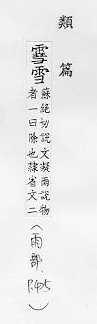 類篇
䨮雪
蘇絕切說文凝雨說物
者一曰除也隸省文二
(雨部,